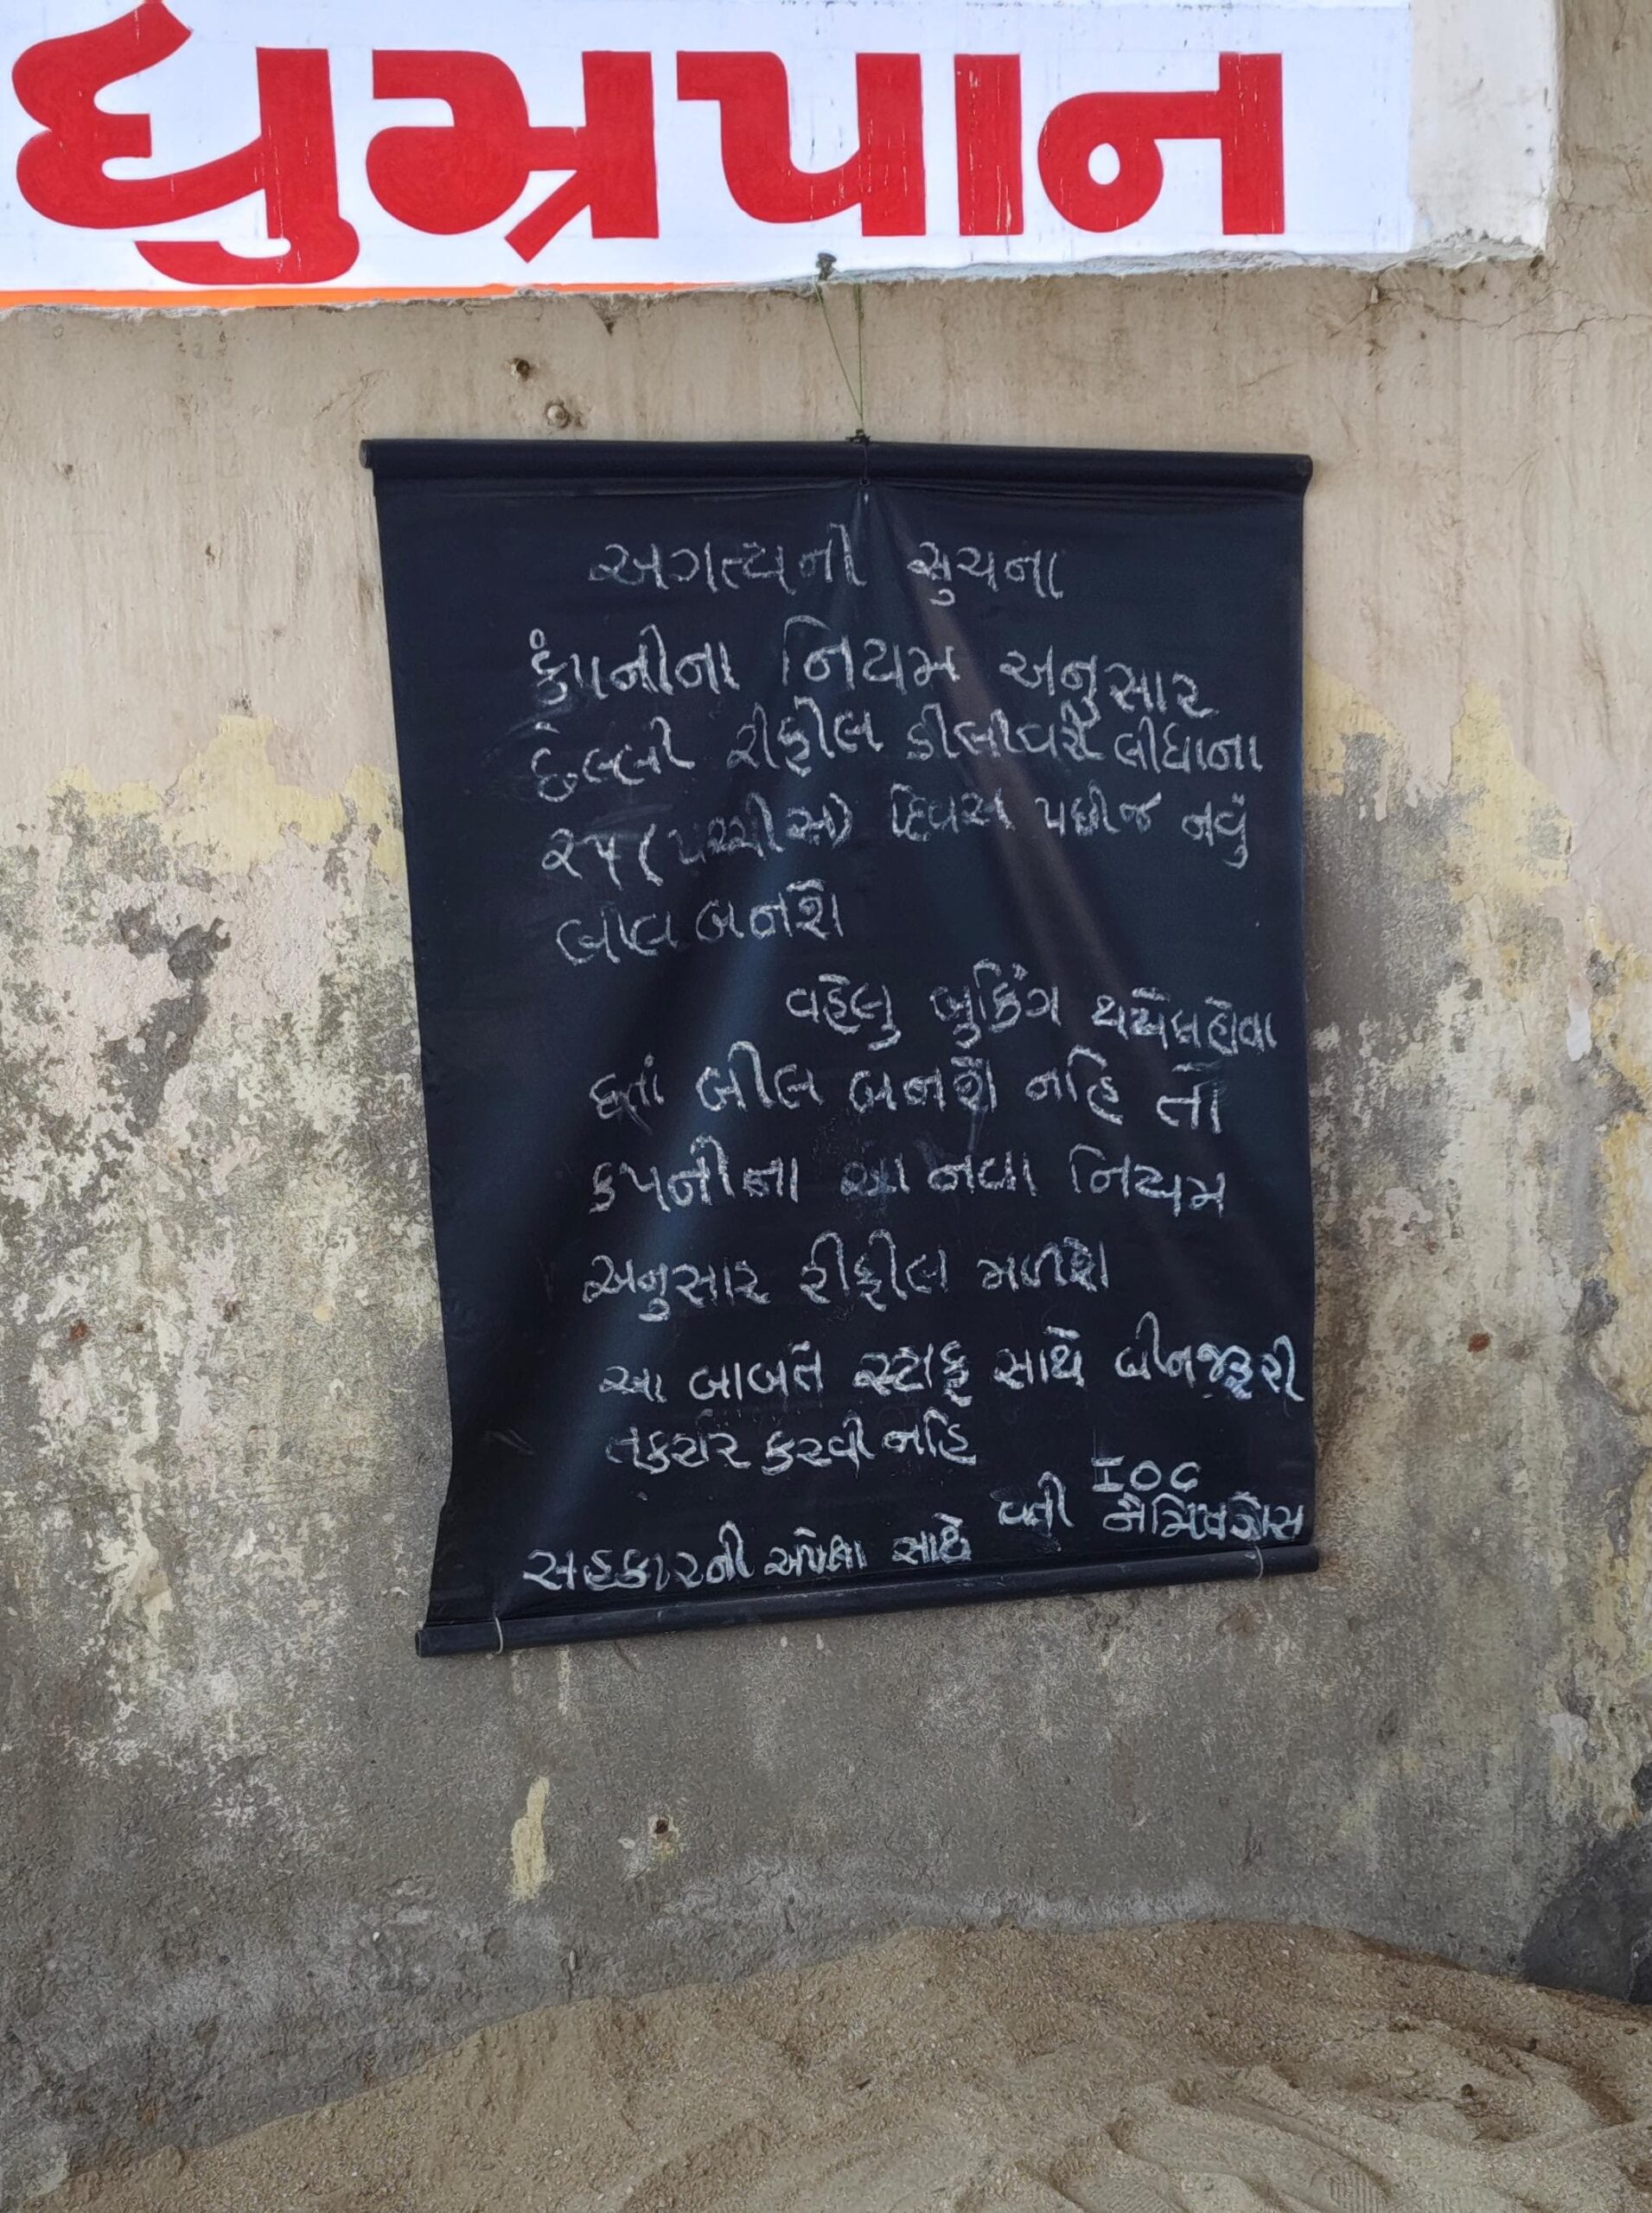 ધુમ્રપાન
અગત્યની સુચના
કંપનીના નિયમ અનુસાર
છેલ્લી રીફીલ ડીલીવરી લીધાના
૨૫ (પચ્ચીસ) દિવસ પછીજ નવું
બીલ બનશે
વહેલુ બુકિંગ થયેલ હોવા
છતાં બીલ બનશે નહિ તો
કપનીના આ નવા નિયમ
અનુસાર રીફીલ મળશે
આ બાબતે સ્ટાફ સાથે બીનજરૂરી
તકરાર કરવી નહિ
સહકારની અપેક્ષા સાથે વતી IOC
ગેસ